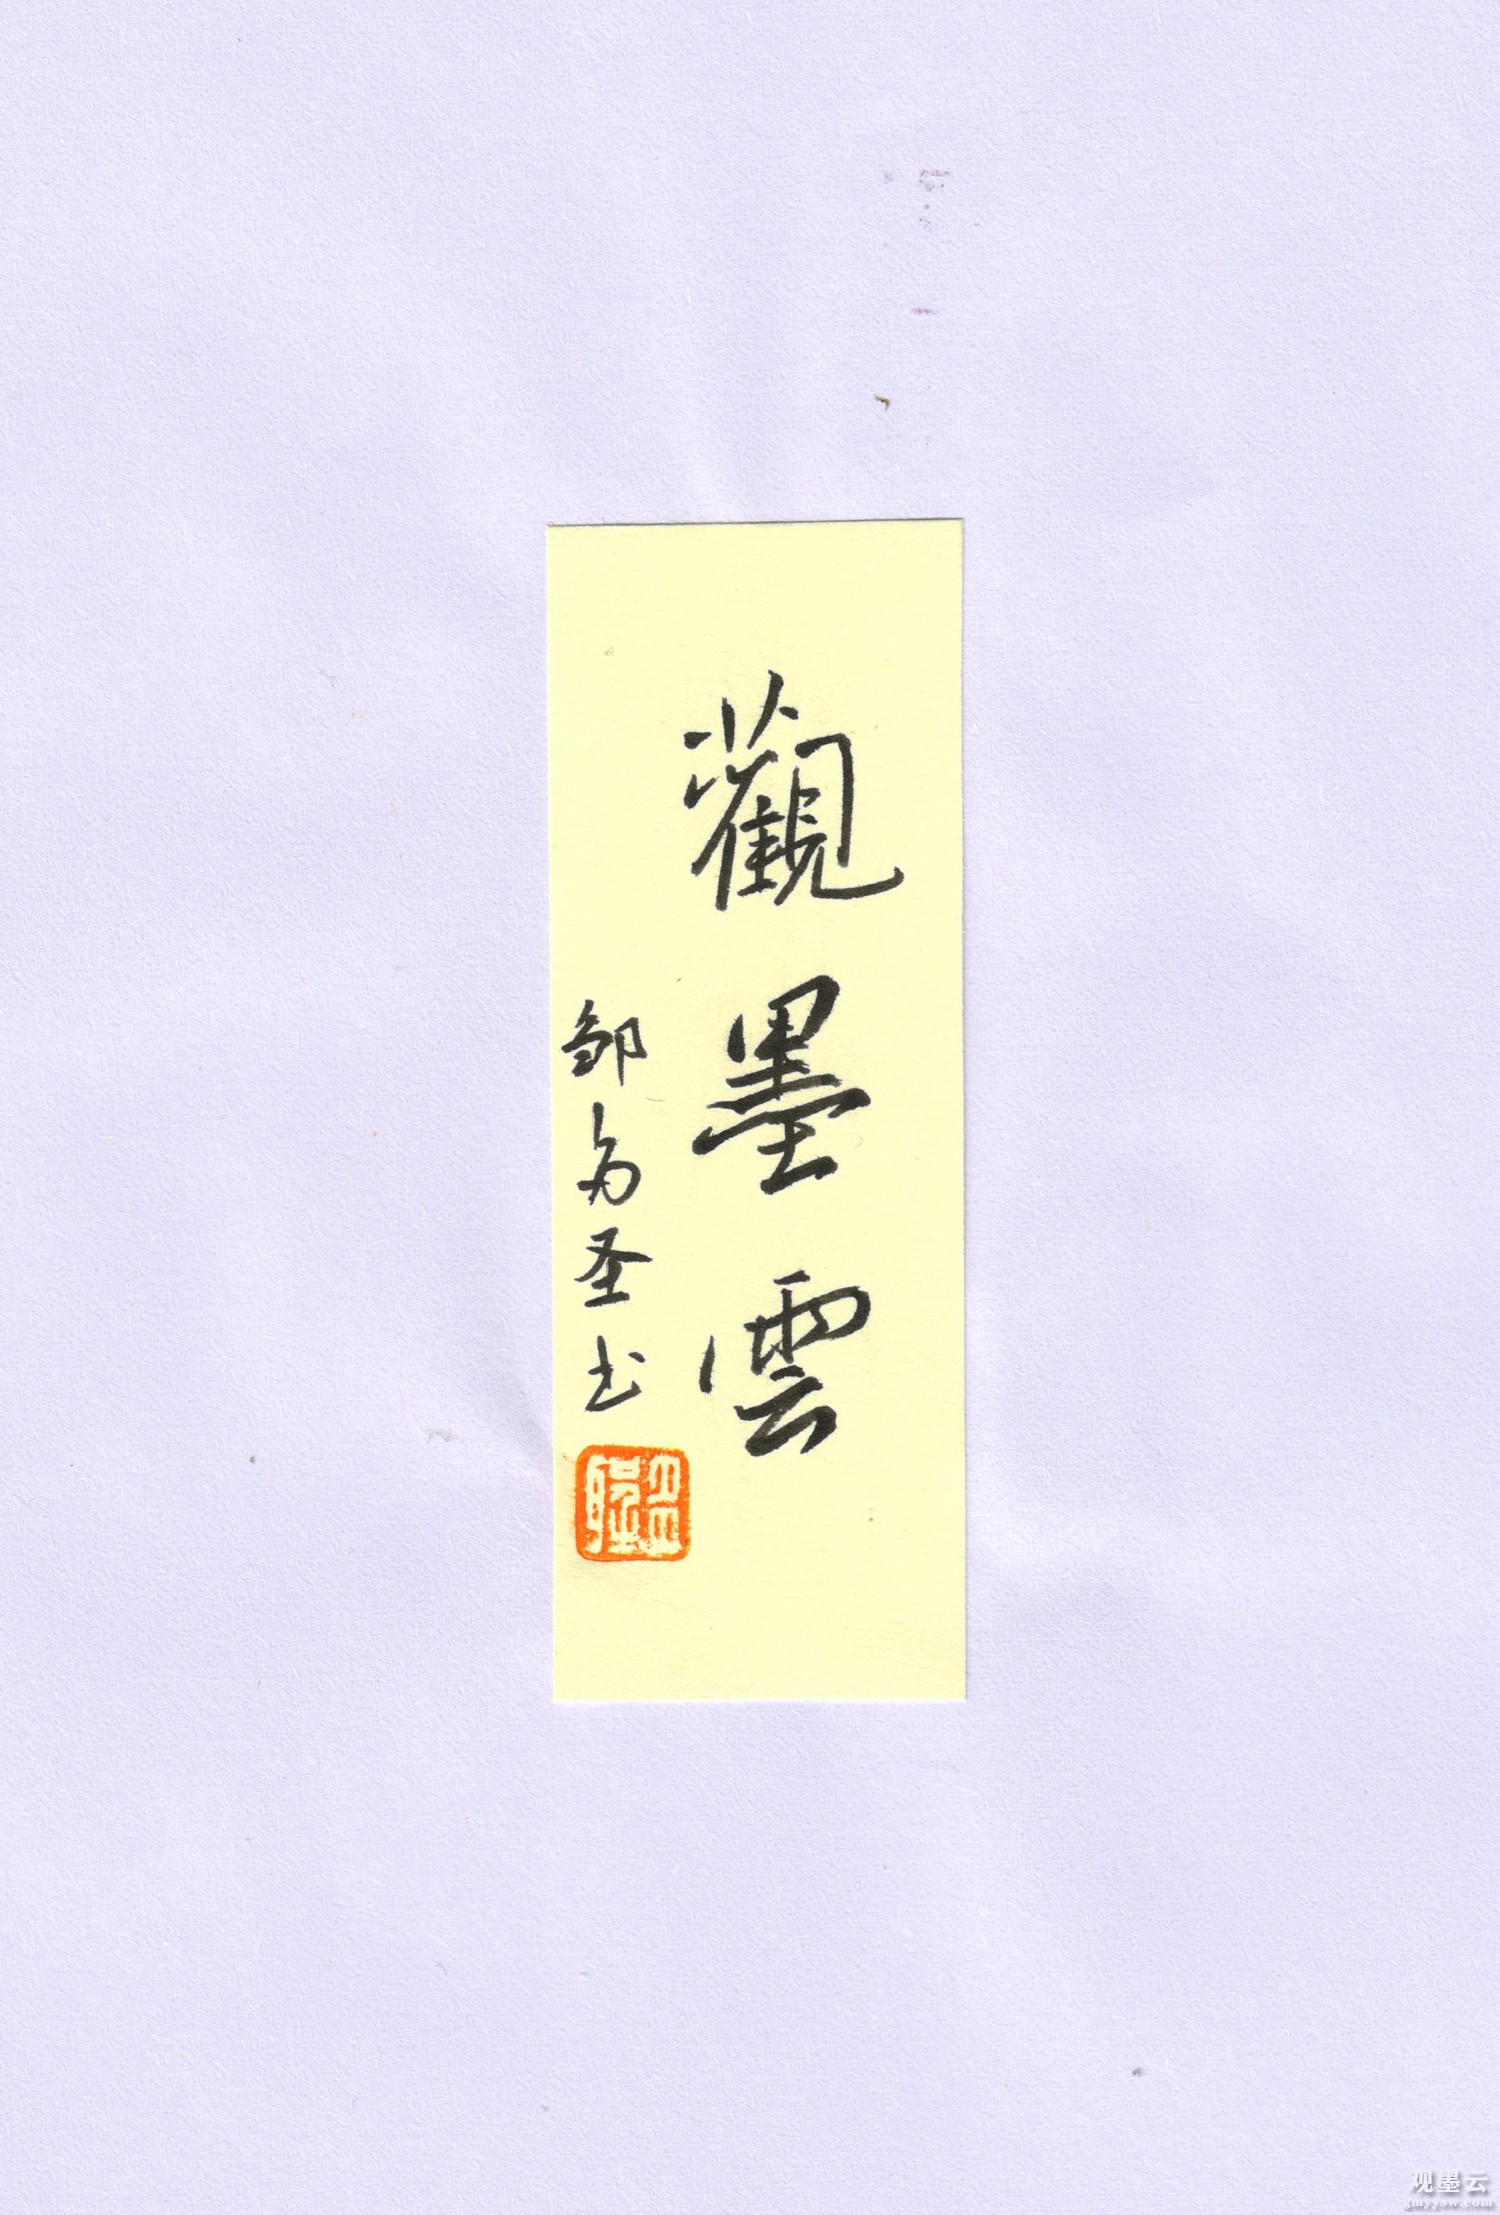 觀墨雲
邹为圣书
观墨云
gmyysw.com